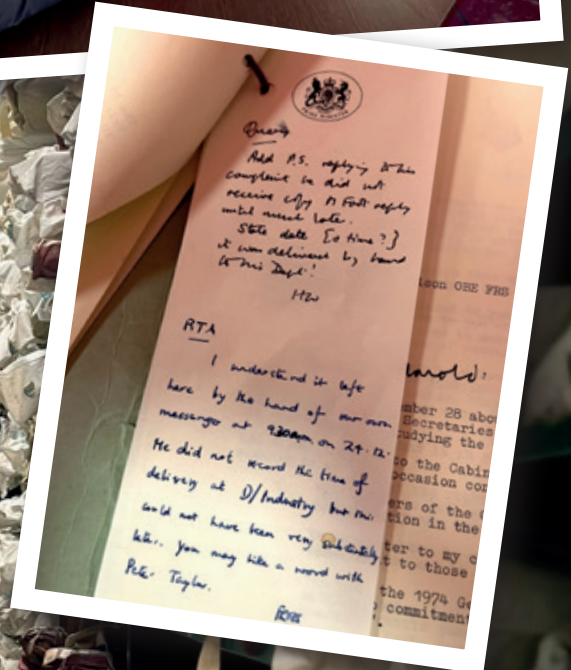 PRIME MINISTER
Query
Add P.S. replying to his
complaint he did not
receive copy of Foot reply
until much later.
State date [& time?]
it was delivered by hand
to his Dept!
HW
RTA
I understand it left
here by the hand of our own
messenger at 930am on 24.12.
He did not record the time of
delivery at D/Industry but this
could not have been very substantially
later. You may like a word with
Peter Taylor.
son OBE FRS
Harold:
mber 28 abou
Secretaries
udying the
to the Cabin
occasion con
ers of the
tion in the
ter to my c
t to those
the 1974 Ge
commitment